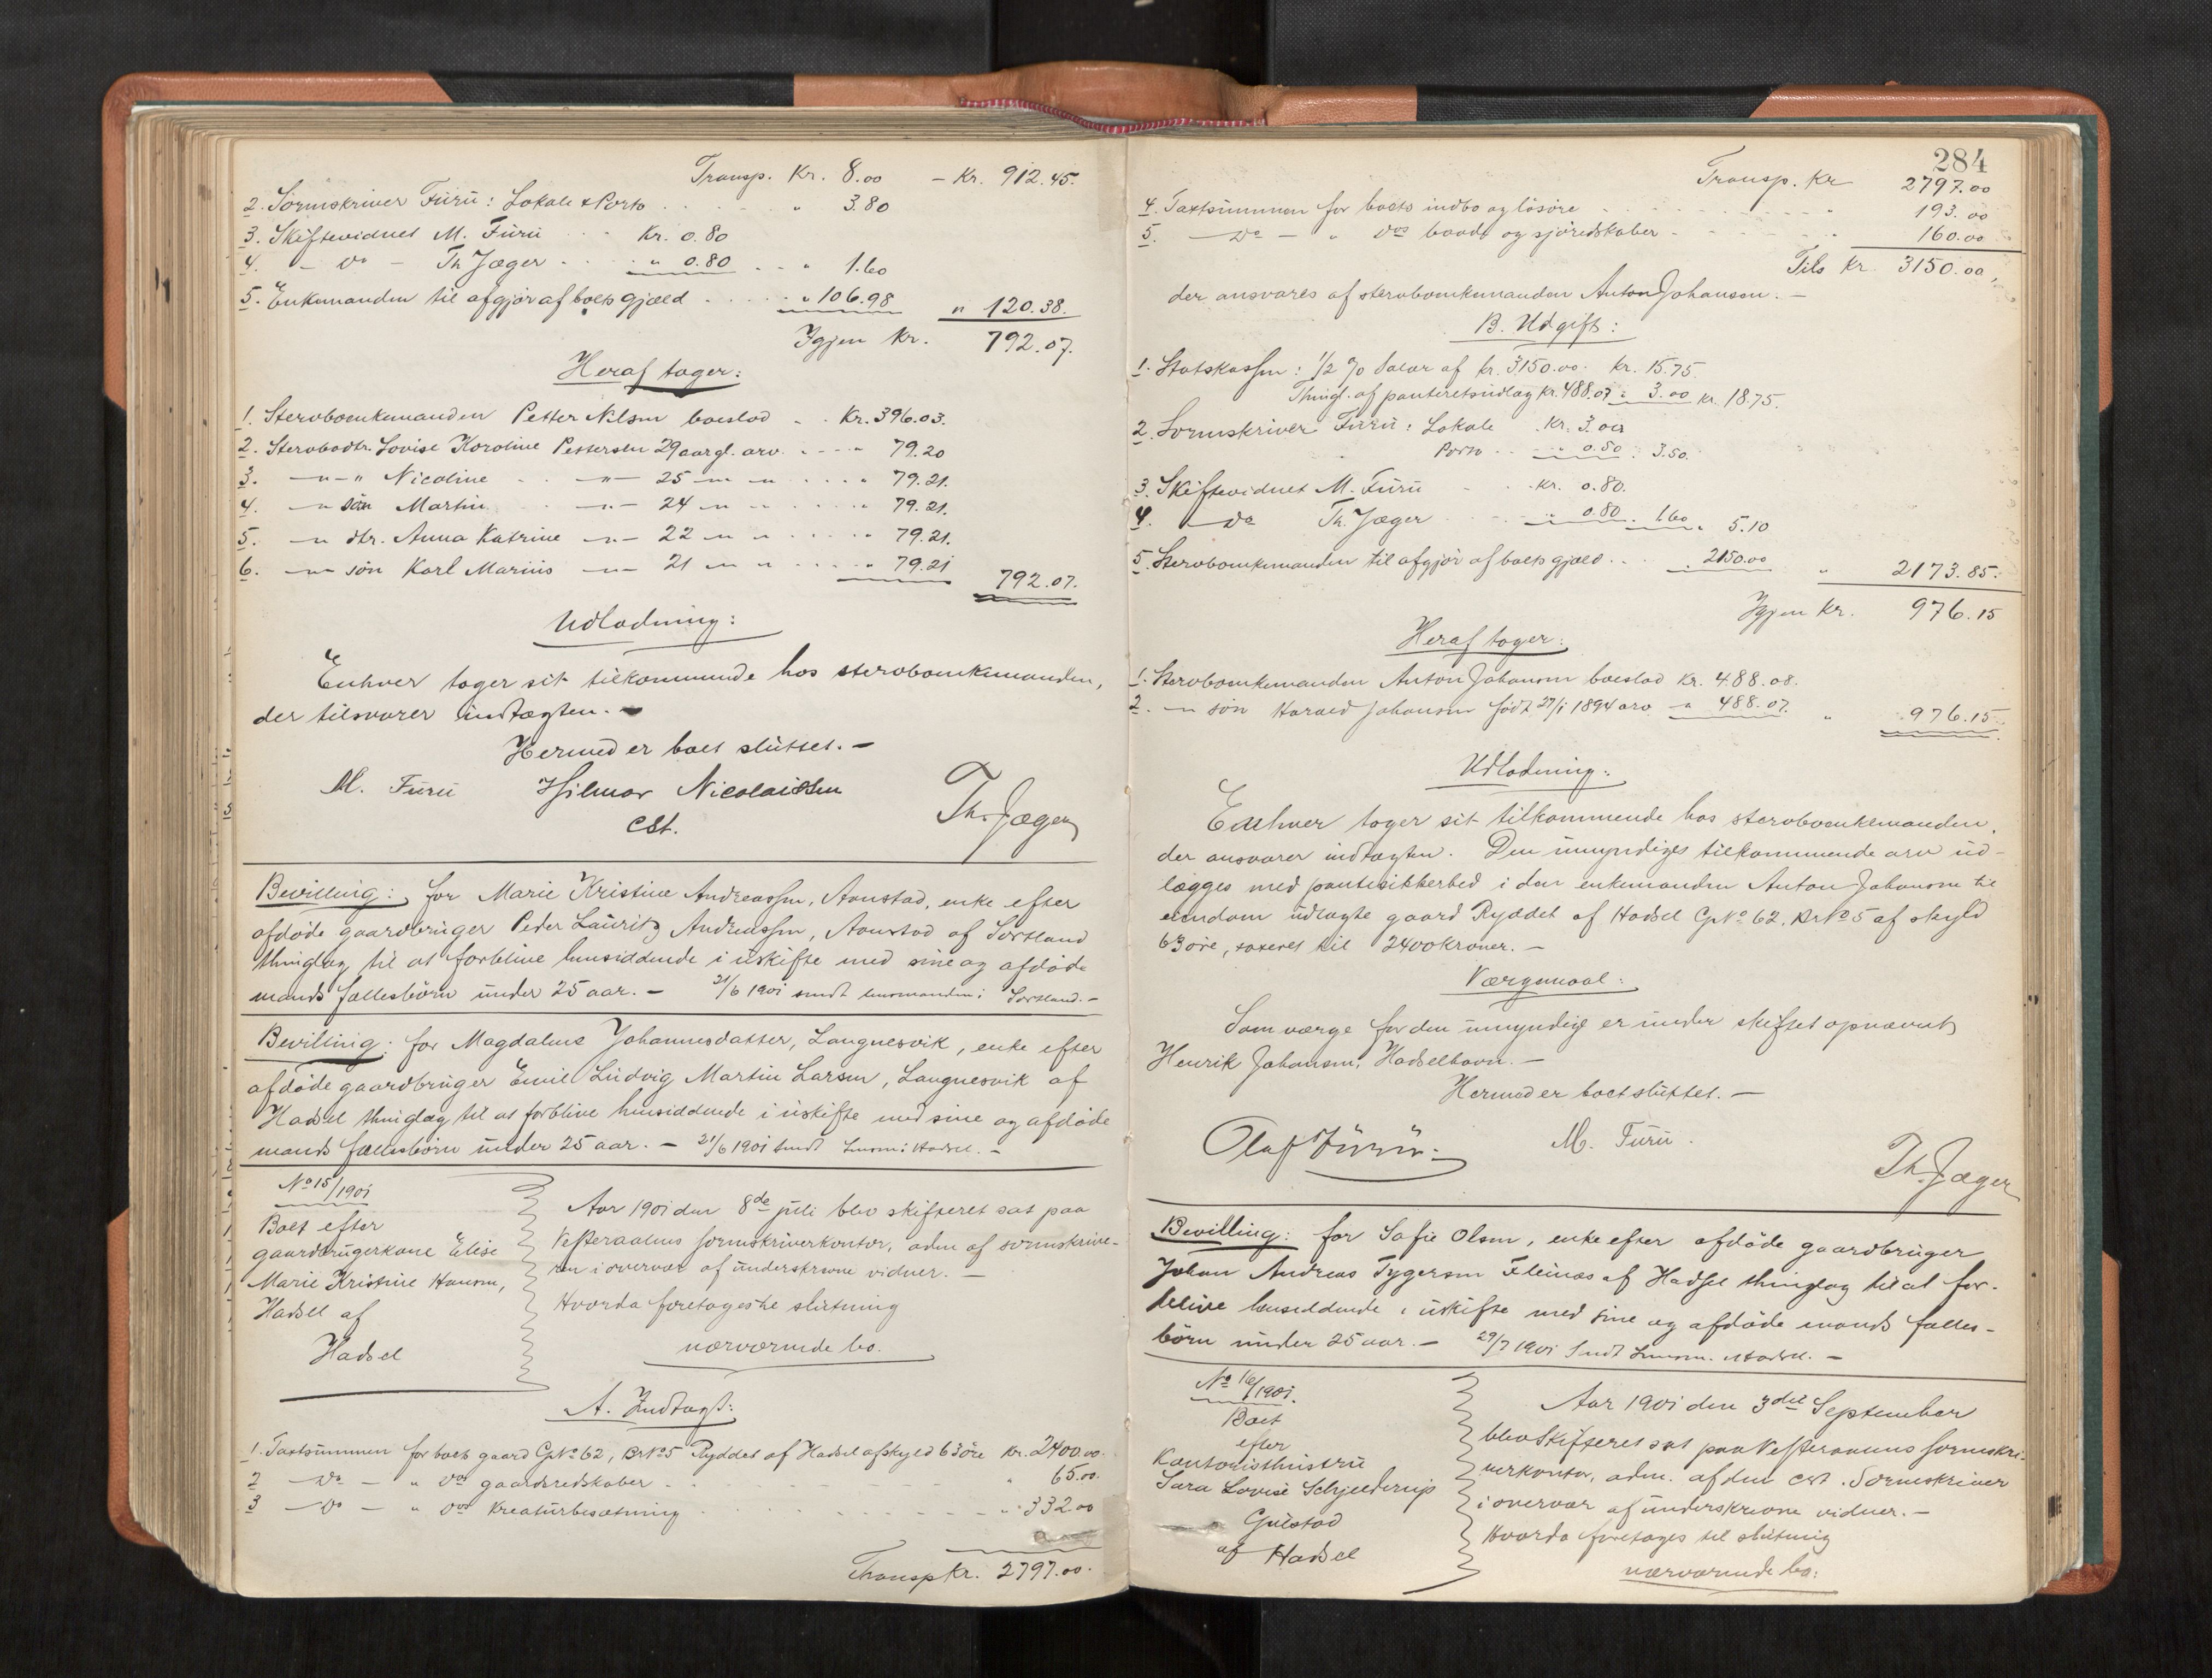 Transp. Kr. 8.00 – Kr. 912.45.
2. Sorenskriver Furu: Lokale & Porto " 3.80
3. Skiftevidnet M. Furu Kr. 0.80
4. – Do – Th Jæger " 0.80 " 1.60
5. Enkemanden til afgjør af boets gjæld " 106.98 " 120.38.
Igjen Kr. 792.07.
Heraf tager:
1. Stervboenkemanden Petter Nilsen boeslod Kr. 396.03.
2. Stervbodtr. Lovise Karoline Pettersen 29 aargl. arv " 79.20
3. – " – " Nicoline – " – 25 – " – " " 79.21.
4. – " søn Martin – " – 24 – " – " " 79.21.
5. – " dtr. Anna Katrine – " – 22 – " – " " 79.21.
6. – " – søn Karl Marius – " – 21 – " – " " 79.21 792.07.
Udlodning:
Enhver tager sit tilkommende hos stervboenkemanden,
der tilsvarer indtægten. –
Hermed er boet sluttet. –
M. Furu Hilmar Nicolaissen Th. Jæger
cst.
Bevilling: for Marie Kristine Andreassen, Aanstad, enke efter
afdøde gaardbruger Peder Lauritz Andreassen, Aanstad af Sortland
thinglag til at forblive hensiddende i uskifte med sine og afdøde
mands fællesbørn under 25 aar. – 21/6 1901 sendt lensmanden i Sortland. –
Bevilling: for Magdalene Johannesdatter, Langnesvik, enke efter
afdøde gaardbruger Emil Ludvig Martin Larsen, Langnesvik af
Hadsel thinglag til at forblive hensiddende i uskifte med sine og afdøde
mands fællesbørn under 25 aar. – 21/6 1901 sendt Lensm. i Hadsel. –
No 15/1901
Boet efter
gaardbrugerkone Elise
Marie Kristine Hansen,
Hadsel af
Hadsel
Aar 1901 den 8de juli blev skifteret sat paa
Vesteraalens sorenskriverkontor, adm af sorenskrive-
ren i overvær af underskrevne vidner. –
Hvorda foretoges til slutning
nærværende bo.
A. Indtægt:
1. Taxtsummen for boets gaard GNo 62, BrNo 5 Ryddet af Hadsel af skyld 63 øre Kr. 2400.00.
2 – Do – " Dos gaardsredskaber " 65.00.
3 – Do – " Dos Kreaturbesætning " 332.00
Transp Kr. 2797.00.
284
Transp. Kr 2797.00
4. Taxtsummen for boets indbo og løsøre " 193.00
5. – Do – " Dos baade og sjøredskaber " 160.00
Tils Kr. 3150.00,
der ansvares af stervboenkemanden Anton Johansen. –
B. Udgift:
1. Statskassen: 1/2 % Salær af kr. 3150.00. kr. 15.75.
Thingl. af panteretsudlæg kr. 488.07 " 3.00 kr. 18.75.
2. Sorenskriver Furu: Lokale Kr. 3.00
Porto " 0.50 : 3.50.
3. Skiftevidnet M. Furu Kr. 0.80.
4. – Do Th. Jæger " 0.80. 1.60 " 5.10
5. Stervboenkemanden til afgjør af boets gjæld " 2150.00 " 2173.85.
Igjen Kr. 976.15
Heraf tager:
1. Stervboenkemanden Anton Johansen boeslod Kr. 488.08.
2. – " søn Harald Johansen født 27/1 1894 arv – " 488.07. " 976.15.
Udlodning:
Enhver tager sit tilkommende hos stervboenkemanden,
der ansvarer indtægten. Den umyndiges tilkommende arv ud-
lægges med pantesikkerhed i den enkemanden Anton Johansen til
eiendom udlagte gaard Ryddet af Hadsel GNo 62, BrNo 5 af skyld
63 øre, taxeret til 2400 kroner. –
Værgemaal:
Som værge for den umyndige er under skiftet opnævnt
Henrik Johansen, Hadselhavn. –
Hermed er boet sluttet. –
Olaf Furu. M. Furu. Th. Jæger
Bevilling: for Sofie Olsen, enke efter afdøde gaardbruger
Johan Andreas Tygersen Fleinæs af Hadsel thinglag til at for-
blive hensiddende i uskifte med sine og afdøde mands fælles-
børn under 25 aar. – 29/7 1901 Sendt Lensm. i Hadsel. –
No 16/1901.
Boet
efter
Kontoristhustru
Sara Lovise Schjelderup
Gulstad
af Hadsel
Aar 1901 den 3die September
blev Skifteret sat paa Vesteraalens sorenskri-
verkontor, adm. af den cst. Sorenskriver
i overvær af underskrevne vidner. –
Hvorda foretoges til slutning
nærværende bo: